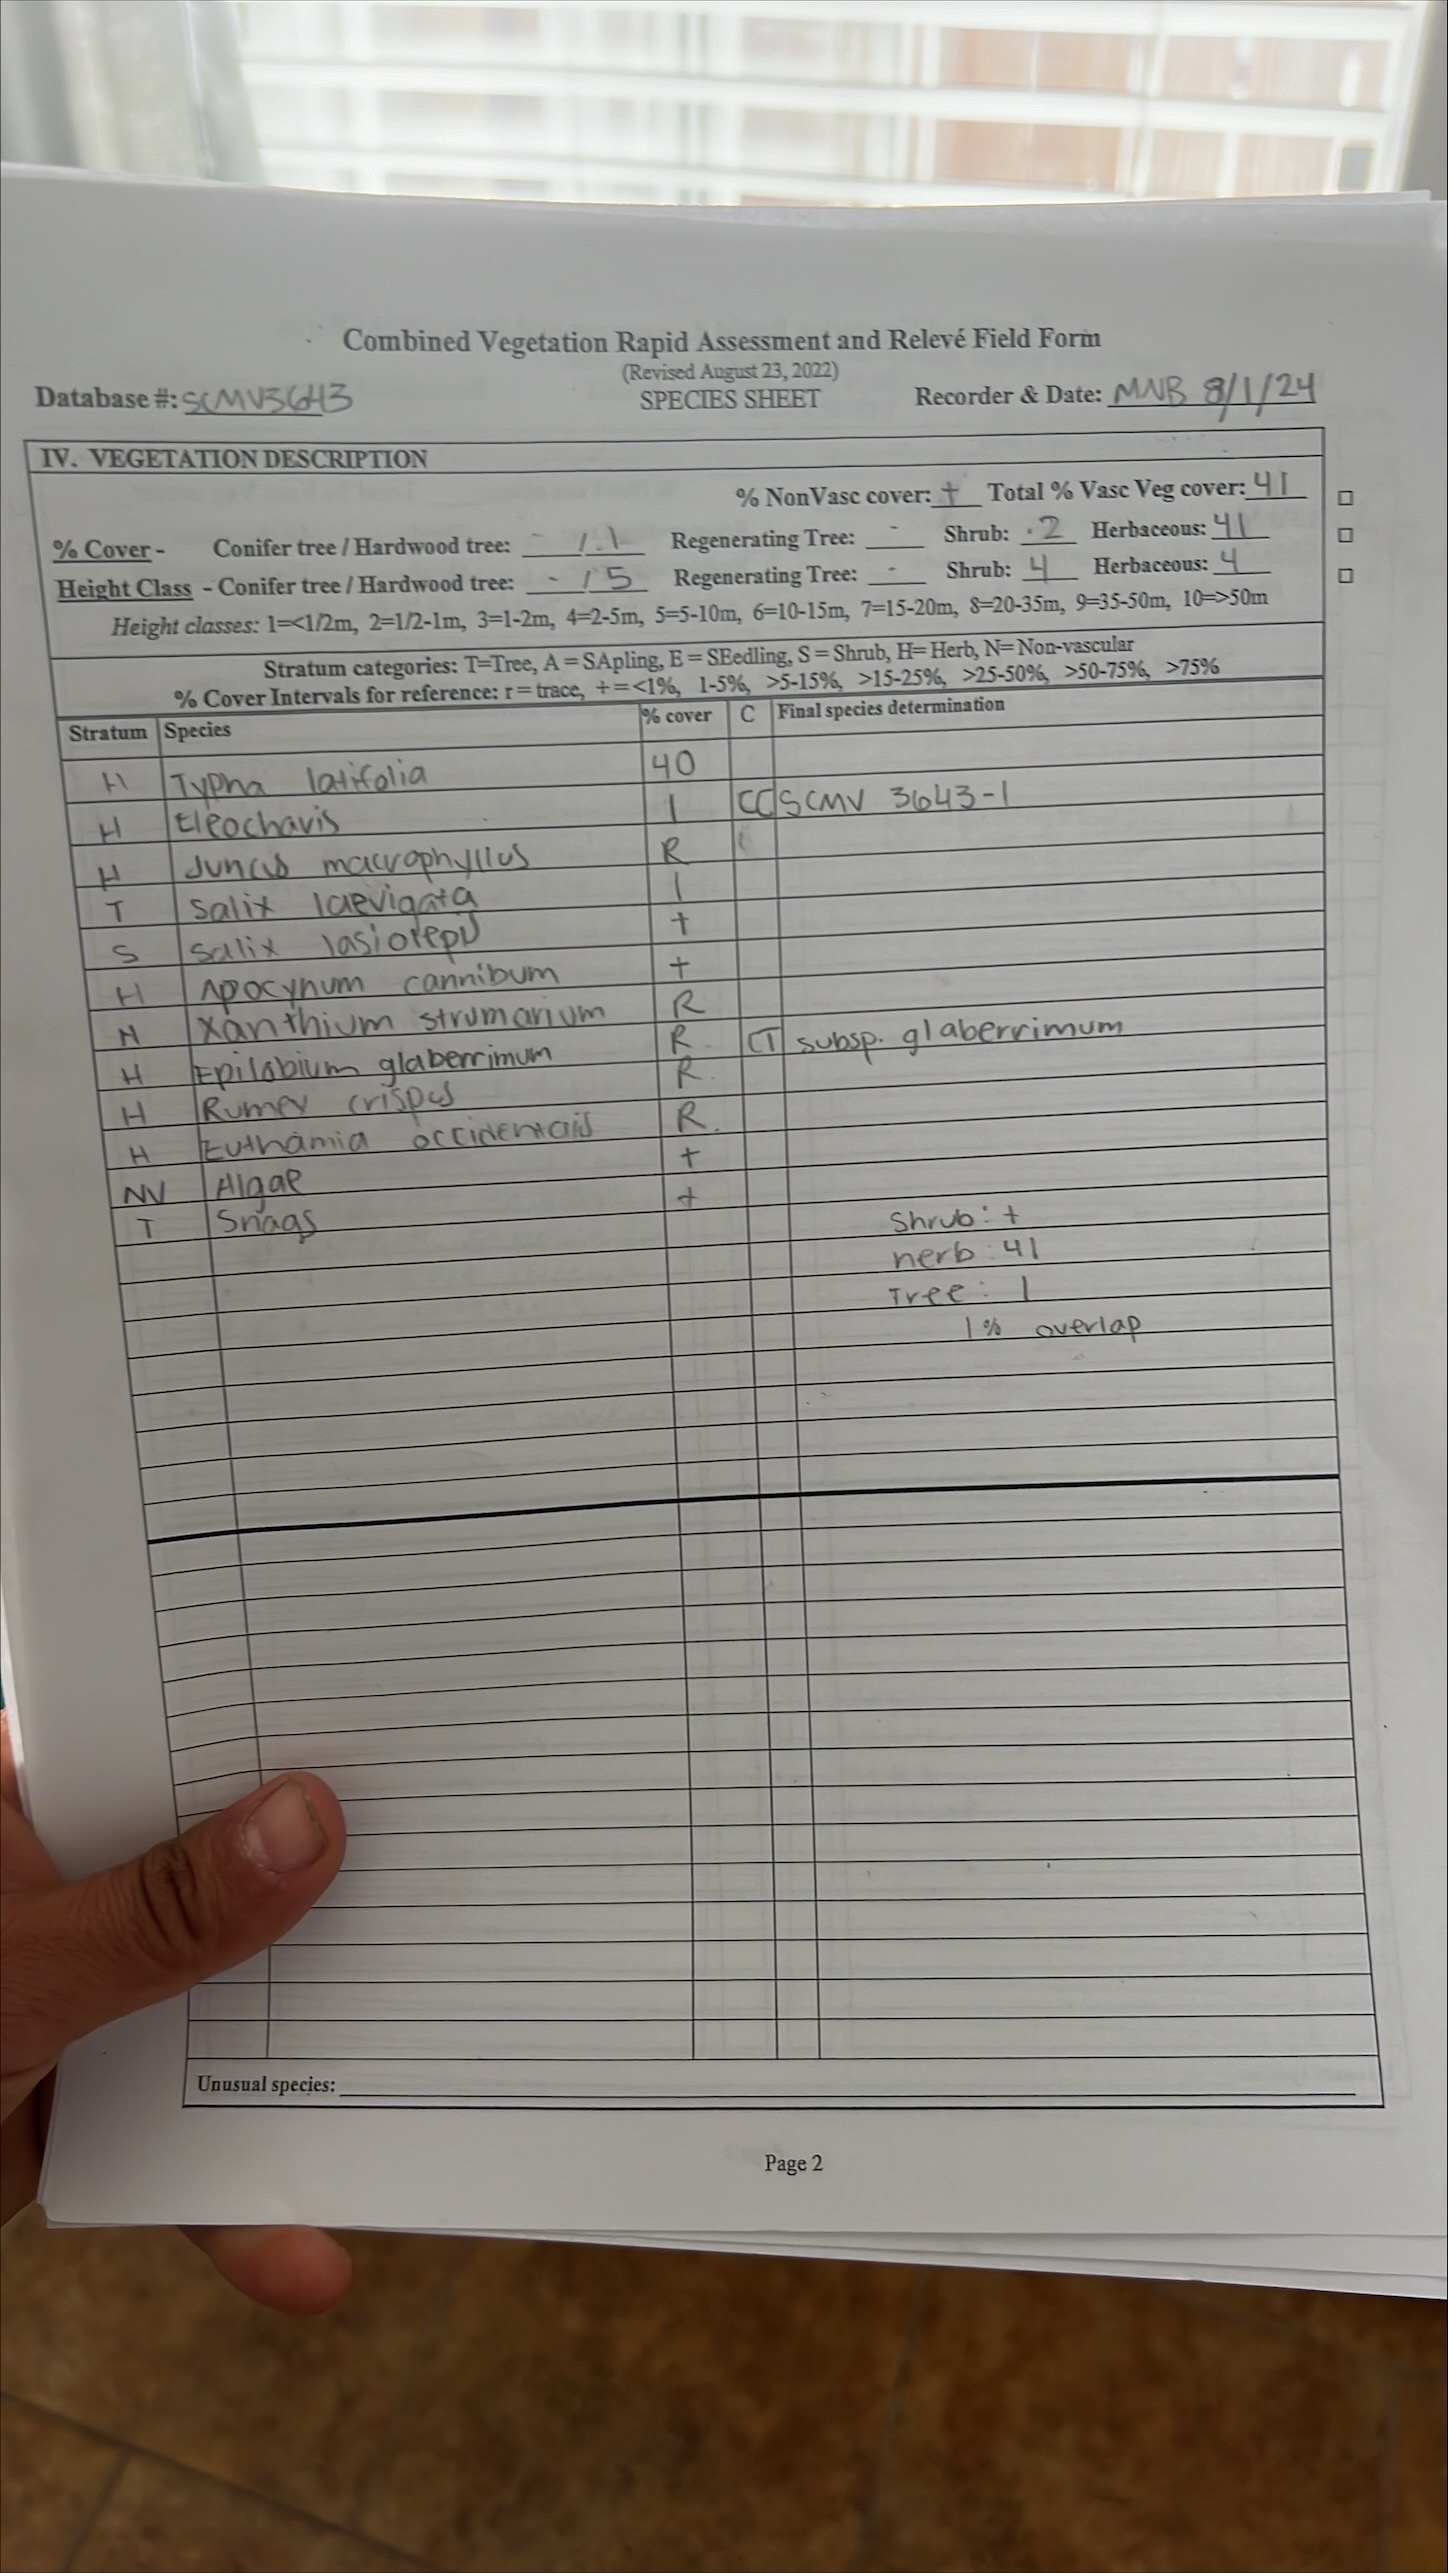 Combined Vegetation Rapid Assessment and Relevé Field Form
(Revised August 23, 2022)
Database #: SCMV3643 SPECIES SHEET Recorder & Date: MNB 8/1/24
IV. VEGETATION DESCRIPTION
% NonVasc cover: + Total % Vasc Veg cover: 41
% Cover - Conifer tree / Hardwood tree: - / .1 Regenerating Tree: - Shrub: .2 Herbaceous: 41
Height Class - Conifer tree / Hardwood tree: - / 5 Regenerating Tree: - Shrub: 4 Herbaceous: 4
Height classes: 1=<1/2m, 2=1/2-1m, 3=1-2m, 4=2-5m, 5=5-10m, 6=10-15m, 7=15-20m, 8=20-35m, 9=35-50m, 10=>50m
Stratum categories: T=Tree, A = SApling, E = SEedling, S = Shrub, H= Herb, N= Non-vascular
% Cover Intervals for reference: r = trace, + = <1%, 1-5%, >5-15%, >15-25%, >25-50%, >50-75%, >75%
Stratum Species % cover C Final species determination
H Typha latifolia 40
H Eleocharis 1 CC SCMV 3643-1
H Juncus macrophyllus R
T Salix laevigata 1
S Salix lasiolepis +
H Apocynum cannibum +
H Xanthium strumarium R
H Epilobium glaberrimum R CT subsp. glaberrimum
H Rumex crispus R
H Euthamia occidentalis R
NV Algae +
T Snags +
Shrub: +
herb: 41
Tree: 1
1% overlap
Unusual species:
Page 2